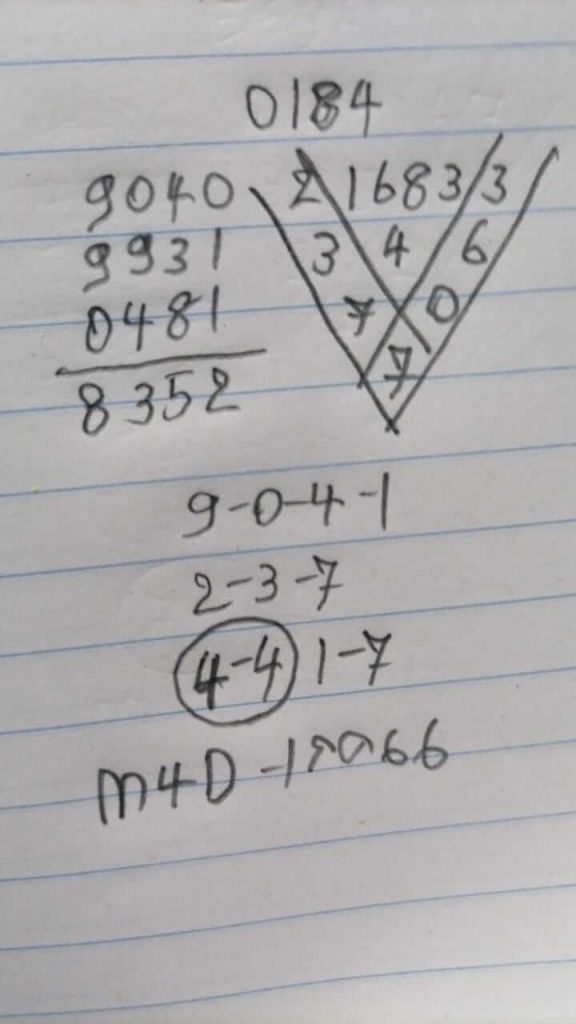 0184
9040
9931
0481
8352
2 1683 3
3 4 6
7 0
7
9-0-4-1
2-3-7
4-4 1-7
M4D